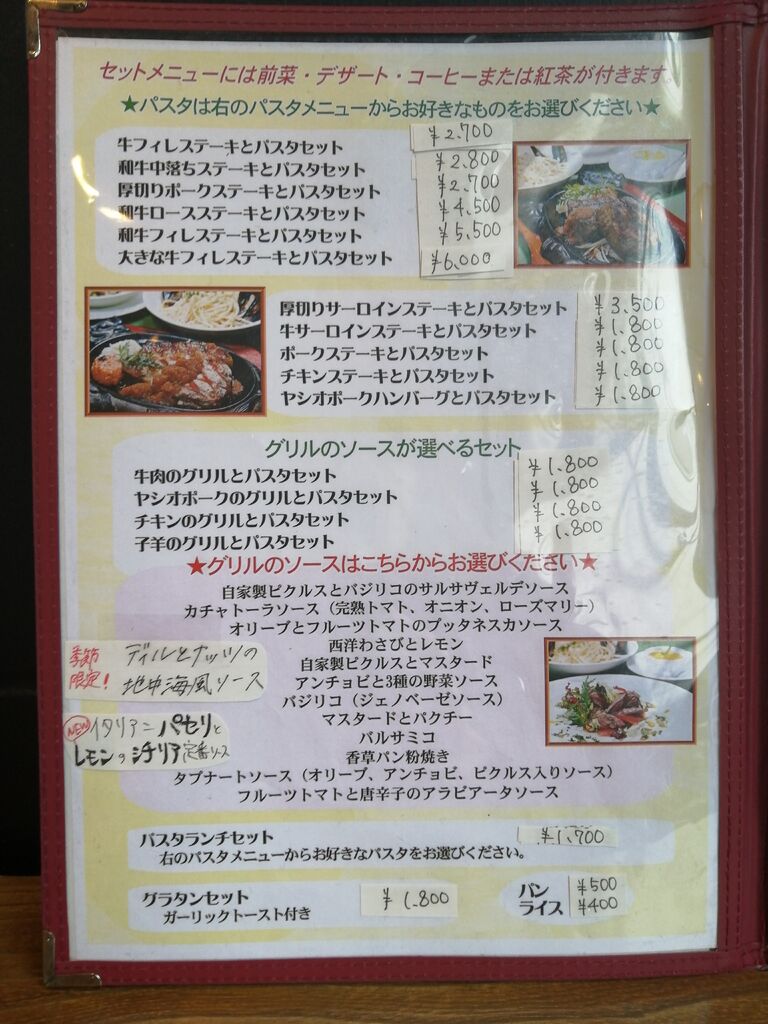 セットメニューには前菜・デザート・コーヒーまたは紅茶が付きます。
★パスタは右のパスタメニューからお好きなものをお選びください★
牛フィレステーキとパスタセット ¥2.700
和牛中落ちステーキとパスタセット ¥2.800
厚切りポークステーキとパスタセット ¥2.700
和牛ロースステーキとパスタセット ¥4.500
和牛フィレステーキとパスタセット ¥5.500
大きな牛フィレステーキとパスタセット ¥6.000
厚切りサーロインステーキとパスタセット ¥3.500
牛サーロインステーキとパスタセット ¥1.800
ポークステーキとパスタセット ¥1.800
チキンステーキとパスタセット ¥1.800
ヤシオポークハンバーグとパスタセット ¥1.800
グリルのソースが選べるセット
牛肉のグリルとパスタセット ¥1.800
ヤシオポークのグリルとパスタセット ¥1.800
チキンのグリルとパスタセット ¥1.800
子羊のグリルとパスタセット ¥1.800
★グリルのソースはこちらからお選びください★
自家製ピクルスとバジリコのサルサヴェルデソース
カチャトーラソース（完熟トマト、オニオン、ローズマリー）
オリーブとフルーツトマトのプッタネスカソース
西洋わさびとレモン
自家製ピクルスとマスタード
アンチョビと3種の野菜ソース
バジリコ（ジェノベーゼソース）
マスタードとパクチー
バルサミコ
香草パン粉焼き
タプナートソース（オリーブ、アンチョビ、ピクルス入りソース）
フルーツトマトと唐辛子のアラビアータソース
季節限定！ ディルとナッツの
地中海風ソース
NEW イタリアンパセリと
レモンのシチリア定番ソース
パスタランチセット ¥1.700
右のパスタメニューからお好きなパスタをお選びください。
グラタンセット ¥1.800
ガーリックトースト付き
パン ¥500
ライス ¥400